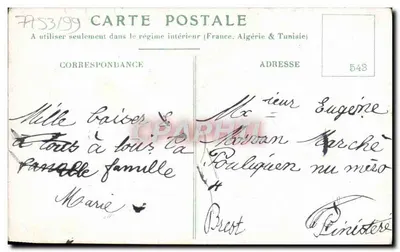 7753/99
CARTE POSTALE
A utiliser seulement dans le régime intérieur (France, Algérie & Tunisie)
CORRESPONDANCE
ADRESSE
B48
Mille baiser &
a tous à tous la
famille famille
Marie
Mxieur Eugène
Morvan Marché
Pouliguen nu méso
4
Brest
Finistère
CPARAMA